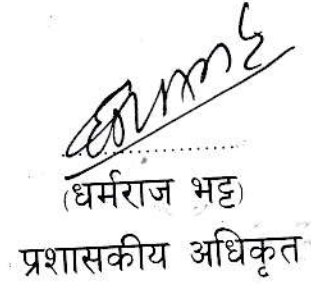 (धर्मराज भट्ट)
प्रशासकीय अधिकृत